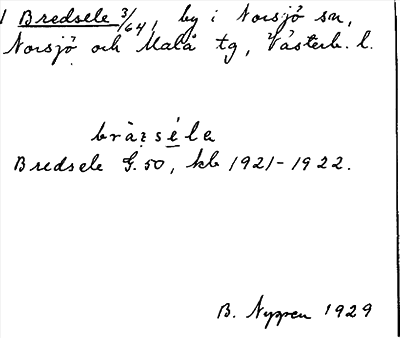 1 Bredsele 3/64, by i Norsjö sn,
Norsjö och Malå tg, Västerb. l.
brä̀ṛséla
Bredsele G.50, kb 1921-1922.
B. Nygren 1929